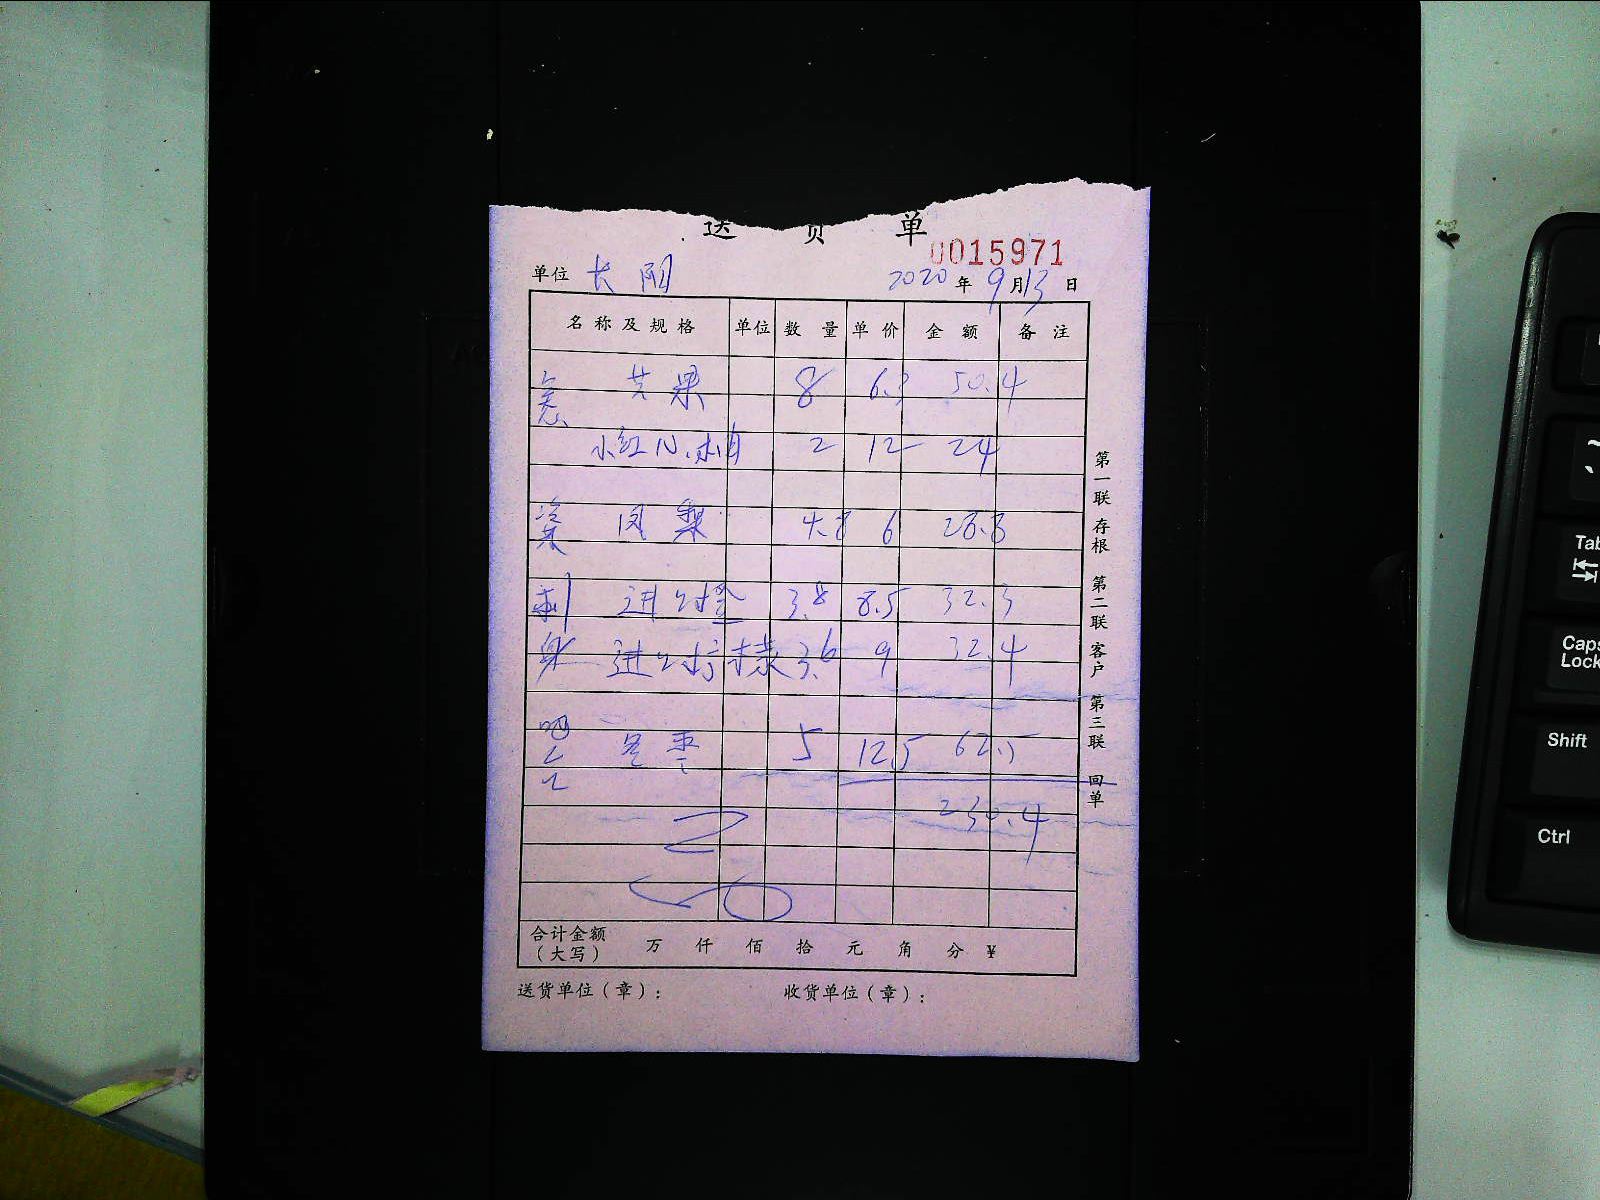 送货单
0015971
单位 长阳 2020年9月13日
名称及规格 单位 数量 单价 金额 备注
苹果 8 6.3 50.4
小红心柚 2 12 24
凉菜 凤梨 4.8 6 28.8
刺身 进口橙 3.8 8.5 32.3
进口柠檬 3.6 9 32.4
吧台 冬枣 5 12.5 62.5
230.4
合计金额（大写） 万 仟 佰 拾 元 角 分 ¥
送货单位（章）： 收货单位（章）：
第一联 存根 第二联 客户 第三联 回单
Tab
Caps Lock
Shift
Ctrl